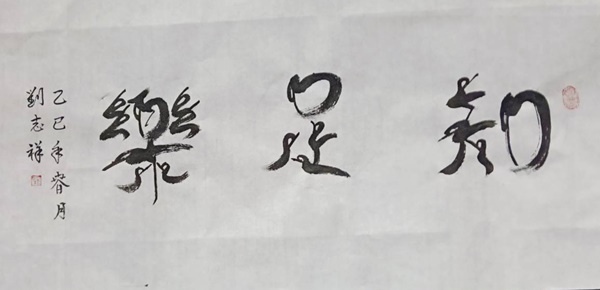 知足樂
乙巳年春月
劉志祥